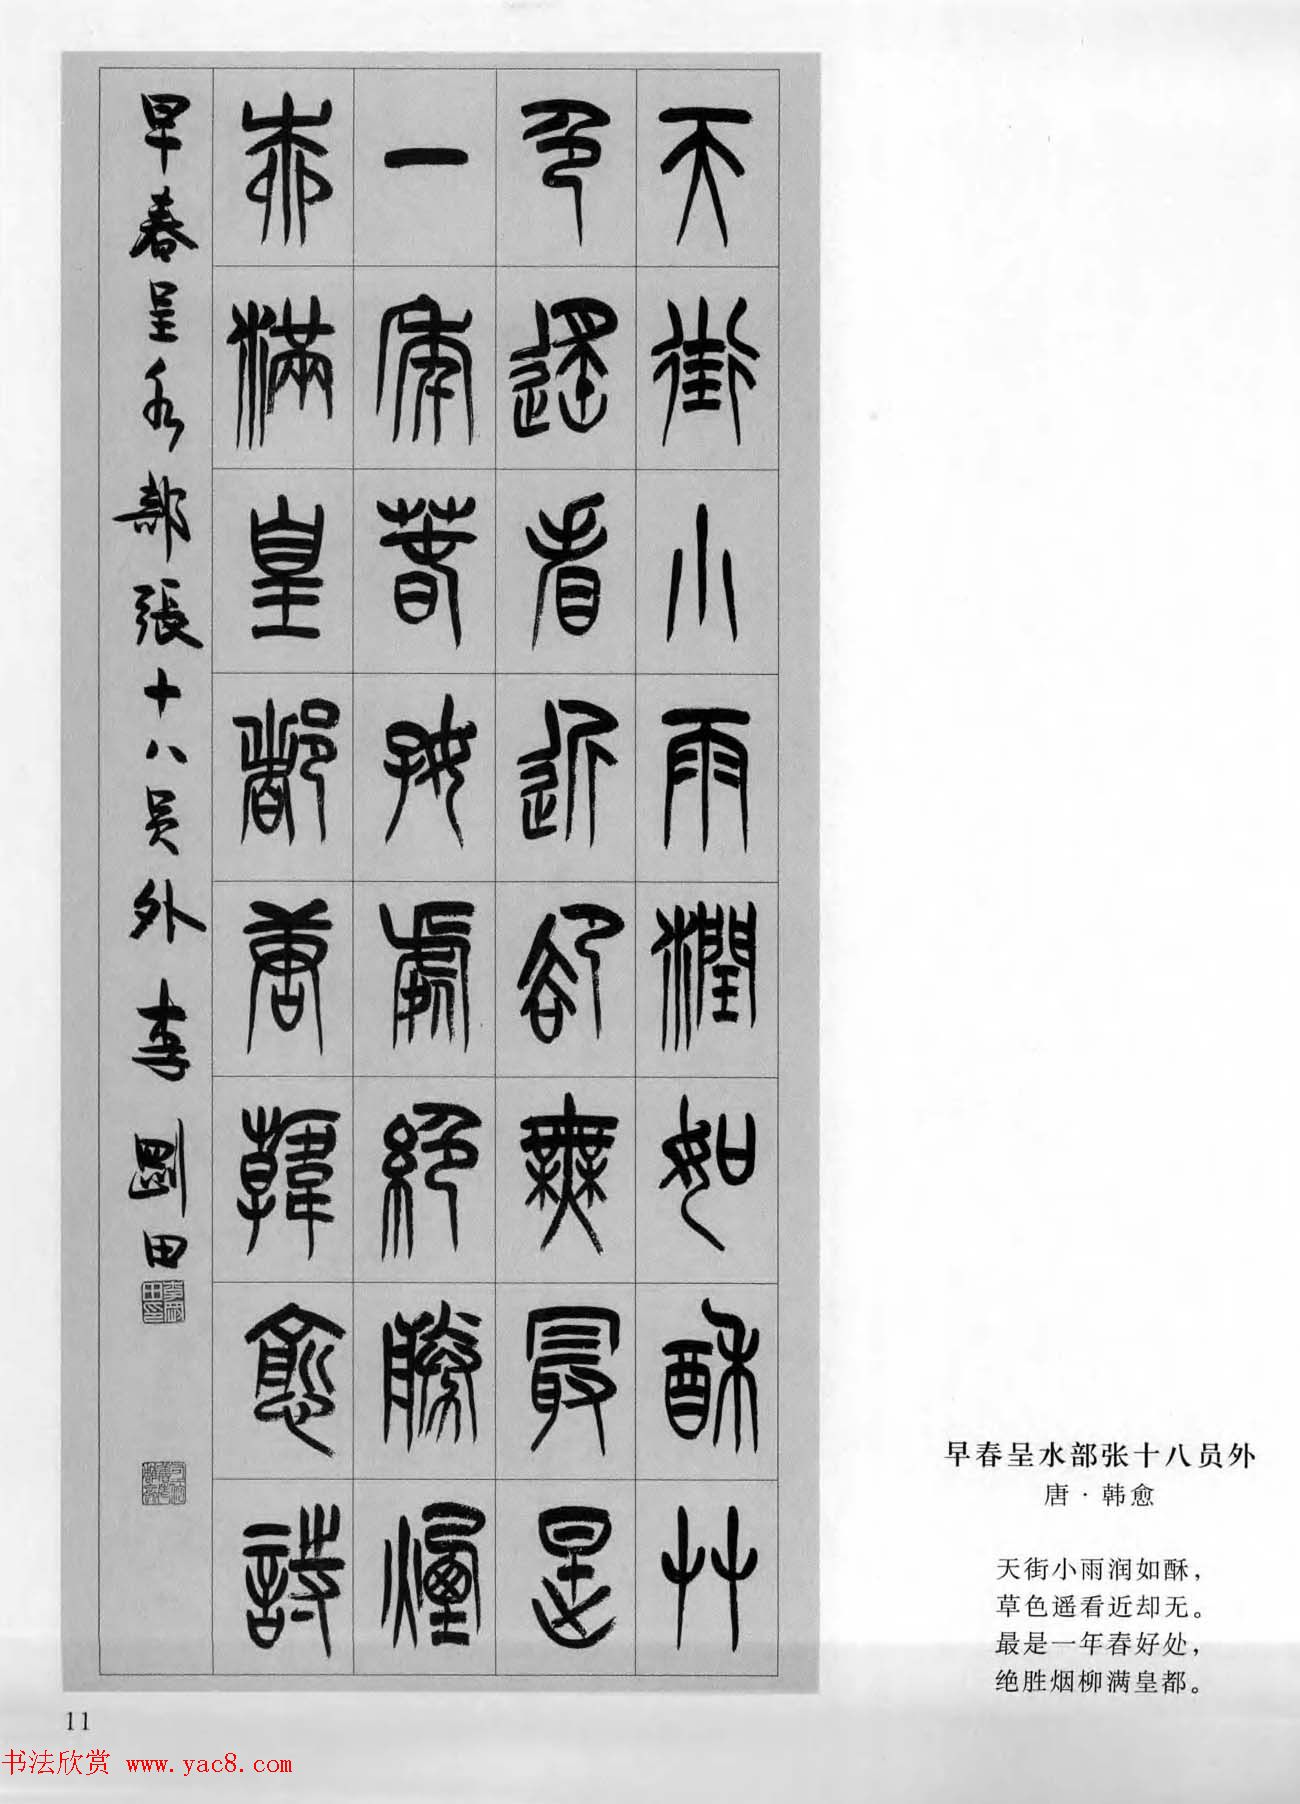 天街小雨潤如酥艸
色遙看近卻無最是
一年萅好處絕勝煙
桺滿皇都唐韓愈詩
早春呈水部張十八員外李剛田
早春呈水部张十八员外
唐·韩愈
天街小雨润如酥，
草色遥看近却无。
最是一年春好处，
绝胜烟柳满皇都。
11
书法欣赏 www.yac8.com